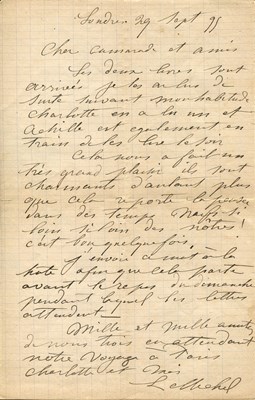 Londres 29 Sept 95
Cher camarade et amis
Les deux livres sont
arrivés je les ai lus de
suite suivant mon habitude
Charlotte en a lu un et
Achille est egalement en
train de les lire le soir
Cela nous a fait un
très grand plaisir ils sont
charmants d'autant plus
que cela reporte la pensée
dans des temps
loin si loin des nôtres!
c'est bon quelquefois,
j'envoie ce mot à la
hate afin que cela parte
avant le repos du dimanche
pendant lequel les lettres
attendent!
Mille et mille amitiés
de nous trois en attendant
notre voyage à Paris
Charlotte et moi
L Michel